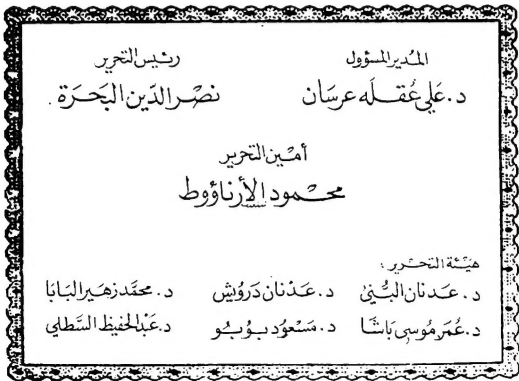 المدير المسؤول رئيس التحرير
د. علي عقله عرسان نصر الدين البحرة
أمين التحرير
محمود الأرناؤوط
هيئة التحرير :
د. عدنان البني د. عدنان درويش د. محمد زهير البابا
د. عمر موسى باشا د. مسعود بوبو د. عبد الحفيظ السطلي